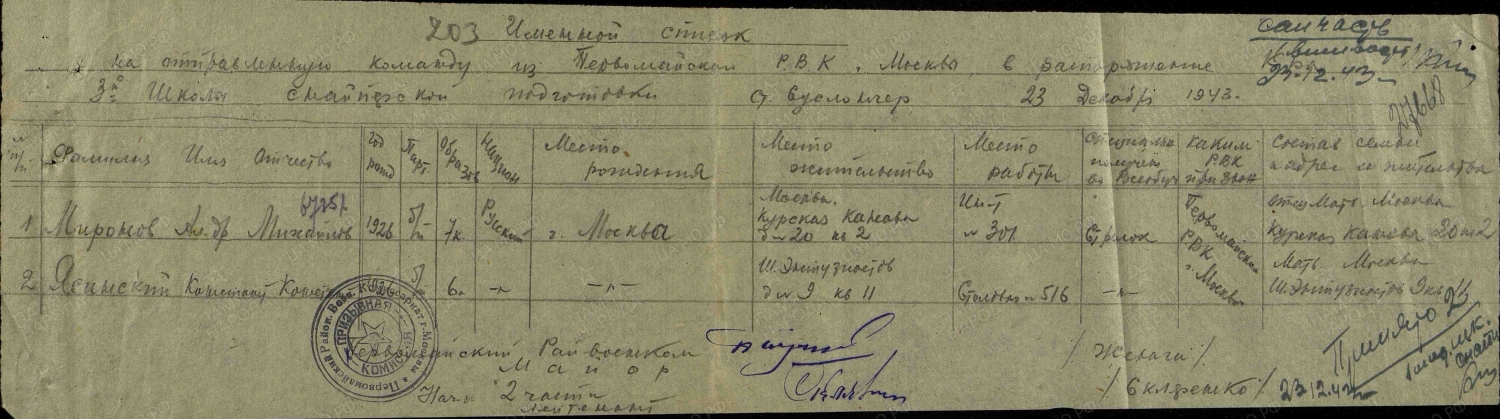 203 Именной список
на отправленную команду из Первомайского Р.В.К. Москвы, в распоряжение
3й Школы снайперской подготовки 23 Декабрь 1943.
санчасть
23-12.43
27668
№ п/п Фамилия Имя Отчество Год рожд Парт. Образов Национ Место рождения Место жительство Место работы Специально получен во Всевобуч Каким РВК призван Состав семьи и адрес м жительства
1 Миронов Ал-др Михайлов 1926 б/п 7к. Русский г. Москва Москва. Курская Канава д № 20 кв 2 Ин-т № 301. Стрелок Первомайский РВК г. Москвы отец Мать. Москва Курская канава 20 кв 2
2 Ясинский 1926 б/п 6к -"- -"- Ш. Энтузиастов д № 9 кв 11 Столовая № 516 -"- Мать. Москва Ш. Энтузиастов 9 кв 11
Первомайский Райвоенком
Майор
Нач. 2 части
лейтенант
Принято 2
23.12.43
Первомайский Район. Воен. Комиссариат г. Москвы
ПРИЗЫВНАЯ КОМИССИЯ